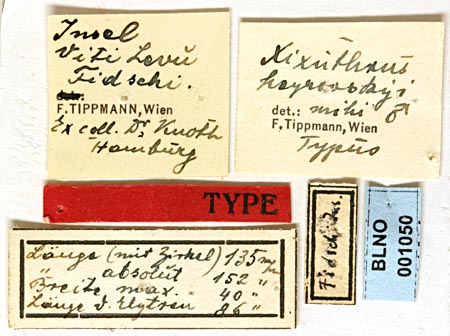 Insel
Viti Levu
Fidschi.
det.:
F. TIPPMANN, Wien
Ex coll. Dr Knoth
Hamburg
Xixuthrus
heyrovskyi
det.: mihi ♂
F. Tippmann, Wien
Typus
TYPE
Länge (mit Zirkel) 135 m/m
" absolut 152 "
Breite max. 40 "
Länge d. Elytren 86 "
Fidschi Ins.
BLNO
001050